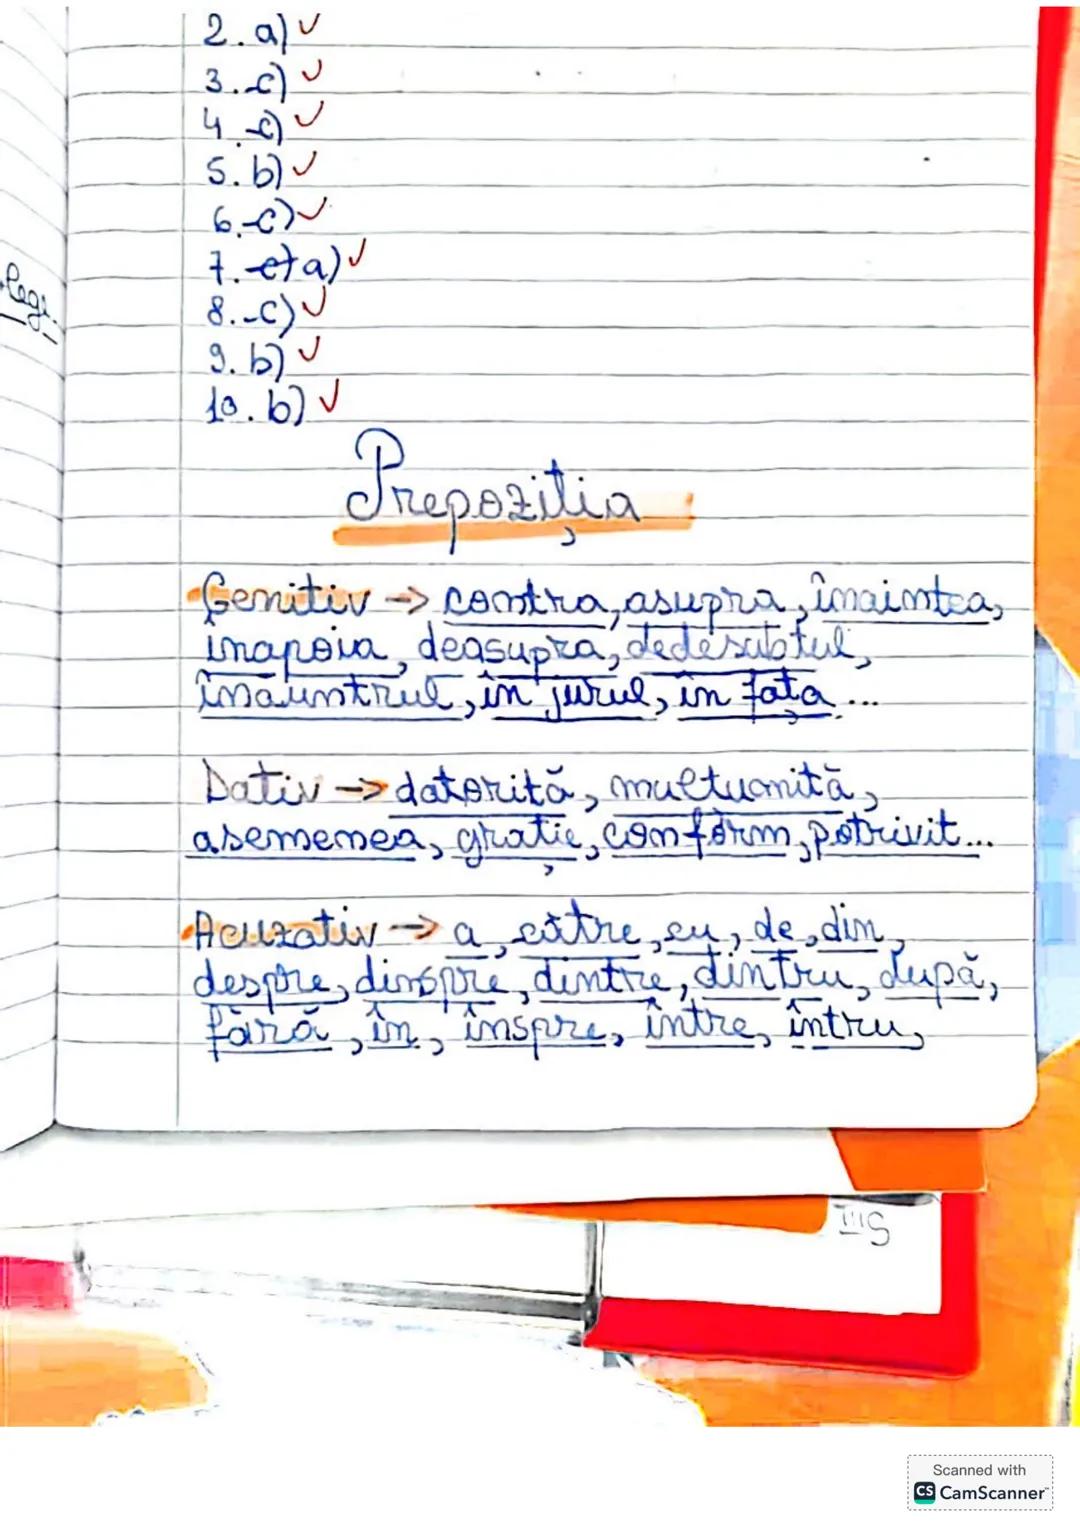 2. a) ✓
3. c) ✓
4. c) ✓
5. b) ✓
6. c) ✓
7. a) ✓
8. c) ✓
9. b) ✓
10. b) ✓
Prepoziția
Genitiv → contra, asupra, înaintea,
înapoia, deasupra, dedesubtul,
înăuntrul, în jurul, în fața...
Dativ → datorită, mulțumită,
asemenea, grație, conform, potrivit...
Acuzativ → a, către, cu, de, din,
despre, dinspre, dintre, dintru, după,
fără, în, înspre, între, întru,
Scanned with
CS CamScanner